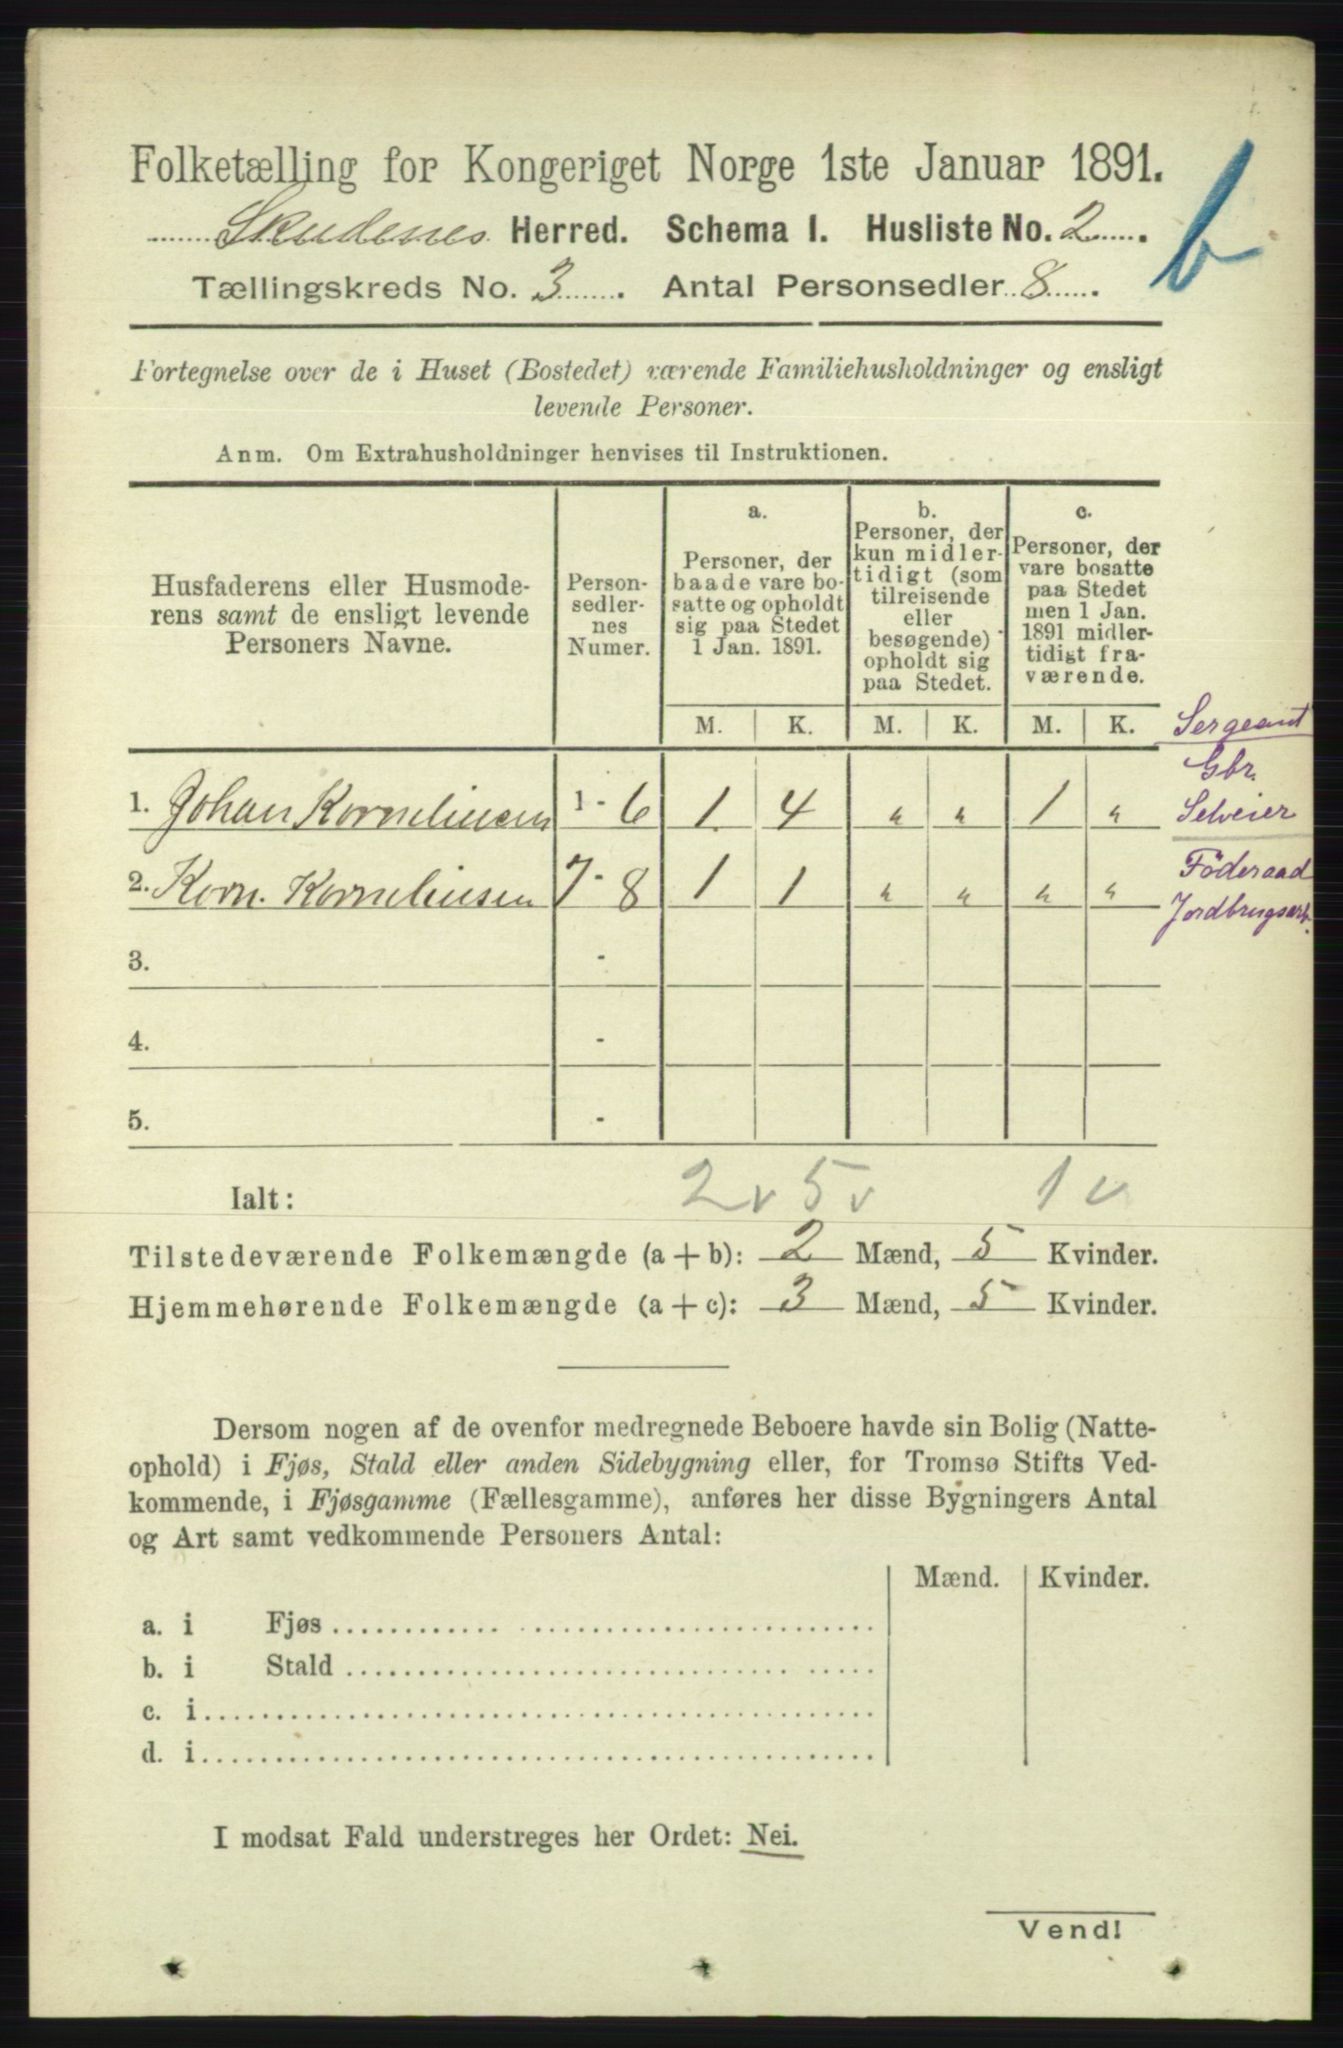 Folketælling for Kongeriget Norge 1ste Januar 1891.
Skudenes Herred. Schema I. Husliste No. 2
b
Tællingskreds No. 3. Antal Personsedler 8.
Fortegnelse over de i Huset (Bostedet) værende Familiehusholdninger og ensligt
levende Personer.
Anm. Om Extrahusholdninger henvises til Instruktionen.
Husfaderens eller Husmode-
rens samt de ensligt levende
Personers Navne.
Person-
sedler-
nes
Numer.
a.
Personer, der
baade vare bo-
satte og opholdt
sig paa Stedet
1 Jan. 1891.
b.
Personer, der
kun midler-
tidigt (som
tilreisende
eller
besøgende)
opholdt sig
paa Stedet.
c.
Personer, der
vare bosatte
paa Stedet
men 1 Jan.
1891 midler-
tidigt fra-
værende.
M. K. M. K. M. K.
Sergeant
Gbr.
Selveier
1. Johan Korneliusen 1 - 6 1 4 " " 1 "
Föderaad
Jordbrugsarb.
2. Korn. Korneliusen 7 - 8 1 1 " " " "
3. -
4. -
5. -
Ialt: 2 v 5 v 1 v
Tilstedeværende Folkemængde (a + b): 2 Mænd, 5 Kvinder.
Hjemmehørende Folkemængde (a + c): 3 Mænd, 5 Kvinder.
Dersom nogen af de ovenfor medregnede Beboere havde sin Bolig (Natte-
ophold) i Fjøs, Stald eller anden Sidebygning eller, for Tromsø Stifts Ved-
kommende, i Fjøsgamme (Fællesgamme), anføres her disse Bygningers Antal
og Art samt vedkommende Personers Antal:
Mænd. Kvinder.
a. i Fjøs
b. i Stald
c. i
d. i
I modsat Fald understreges her Ordet: Nei.
Vend!